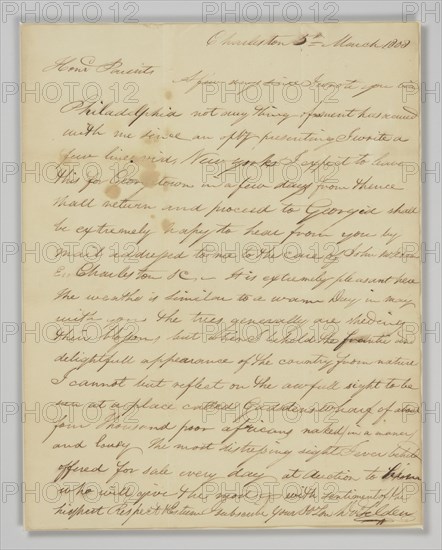 Charleston 5th March 1808
Hond Parents
A few days since I wrote you via
Philadelphia not any thing of moment has occured
with me since an opty presenting I write a
few lines via New York I expect to leave
this for George town in a few days from thence
shall return and proceed to Georgia shall
be extremely happy to hear from you by
mail addressed to me to the care of John
Charleston SC It is extremely pleasant here
the weather is similar to a warm Day in may
with you the trees generally are sheding
their blossoms but when I behold the
delightfull appearance of the country from nature
I cannot but reflect on the awfull sight to be
seen at a place called Gadsdens Wharf of about
four thousand poor africans naked in
and the most distressing sight I ever beheld
offered for sale every day at Auction to
who will give the most with sentiments of the
highest Respect & Esteem I subscribe your
PHOTO12